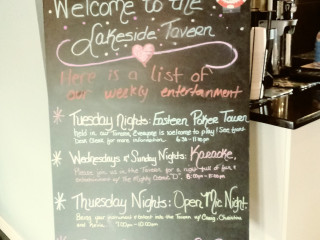 Welcome to the
Lakeside Tavern
Here is a list of
our weekly entertainment
Tuesday Nights: Eastern Poker Tour
held in our Tavern, Everyone is welcome to play! See front
Desk Clerk for more information. 6:30-11:30pm
Wednesdays & Sunday Nights: Karaoke,
Please join us in the Tavern for a night full of fun &
entertainment w/ The Mighty Grand "D". 8:00pm-11:30pm
Thursday Nights: Open Mic Night
Bring your instrument & talent into the Tavern w/ Craig, Christine
and horse. 7:00pm-10:00pm